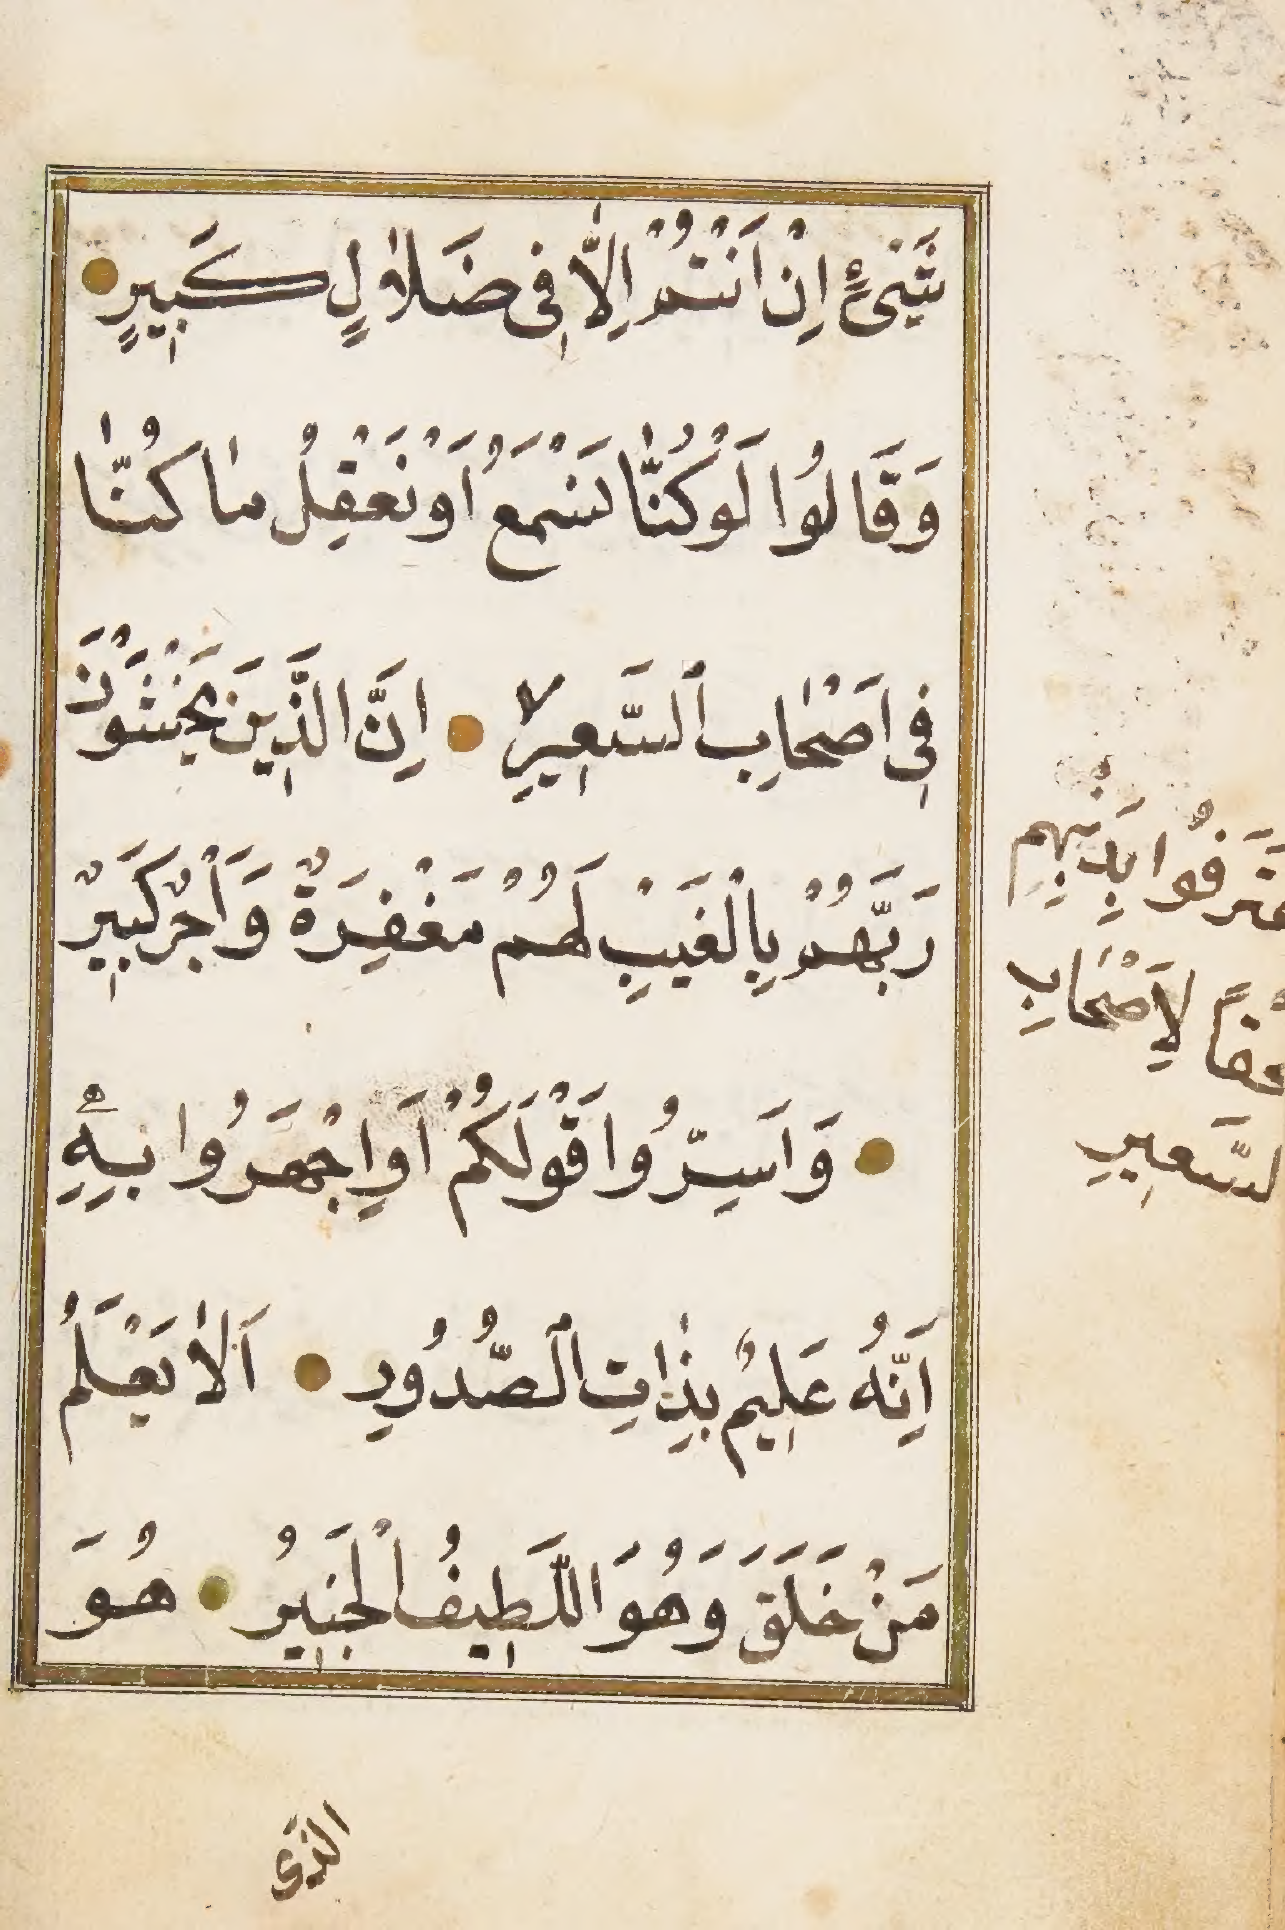 شَيْئٍ اِنْ اَنْتُمْ اِلَّا فِى ضَلَالٍ كَبِيرٍ
وَقَالُوا لَوْ كُنَّا نَسْمَعُ اَوْ نَعْقِلُ مَا كُنَّا
فِى اَصْحَابِ السَّعِيرِ اِنَّ الَّذِينَ يَخْشَوْنَ
رَبَّهُمْ بِالْغَيْبِ لَهُمْ مَغْفِرَةٌ وَاَجْرٌ كَبِيرٌ
وَاَسِرُّوا قَوْلَكُمْ اَوِ اجْهَرُوا بِهِ
اِنَّهُ عَلِيمٌ بِذَاتِ الصُّدُورِ اَلَا يَعْلَمُ
مَنْ خَلَقَ وَهُوَ اللَّطِيفُ الْخَبِيرُ هُوَ
الذى
بِذَنْبِهِمْ
لِاَصْحَابِ
السَّعِيرِ